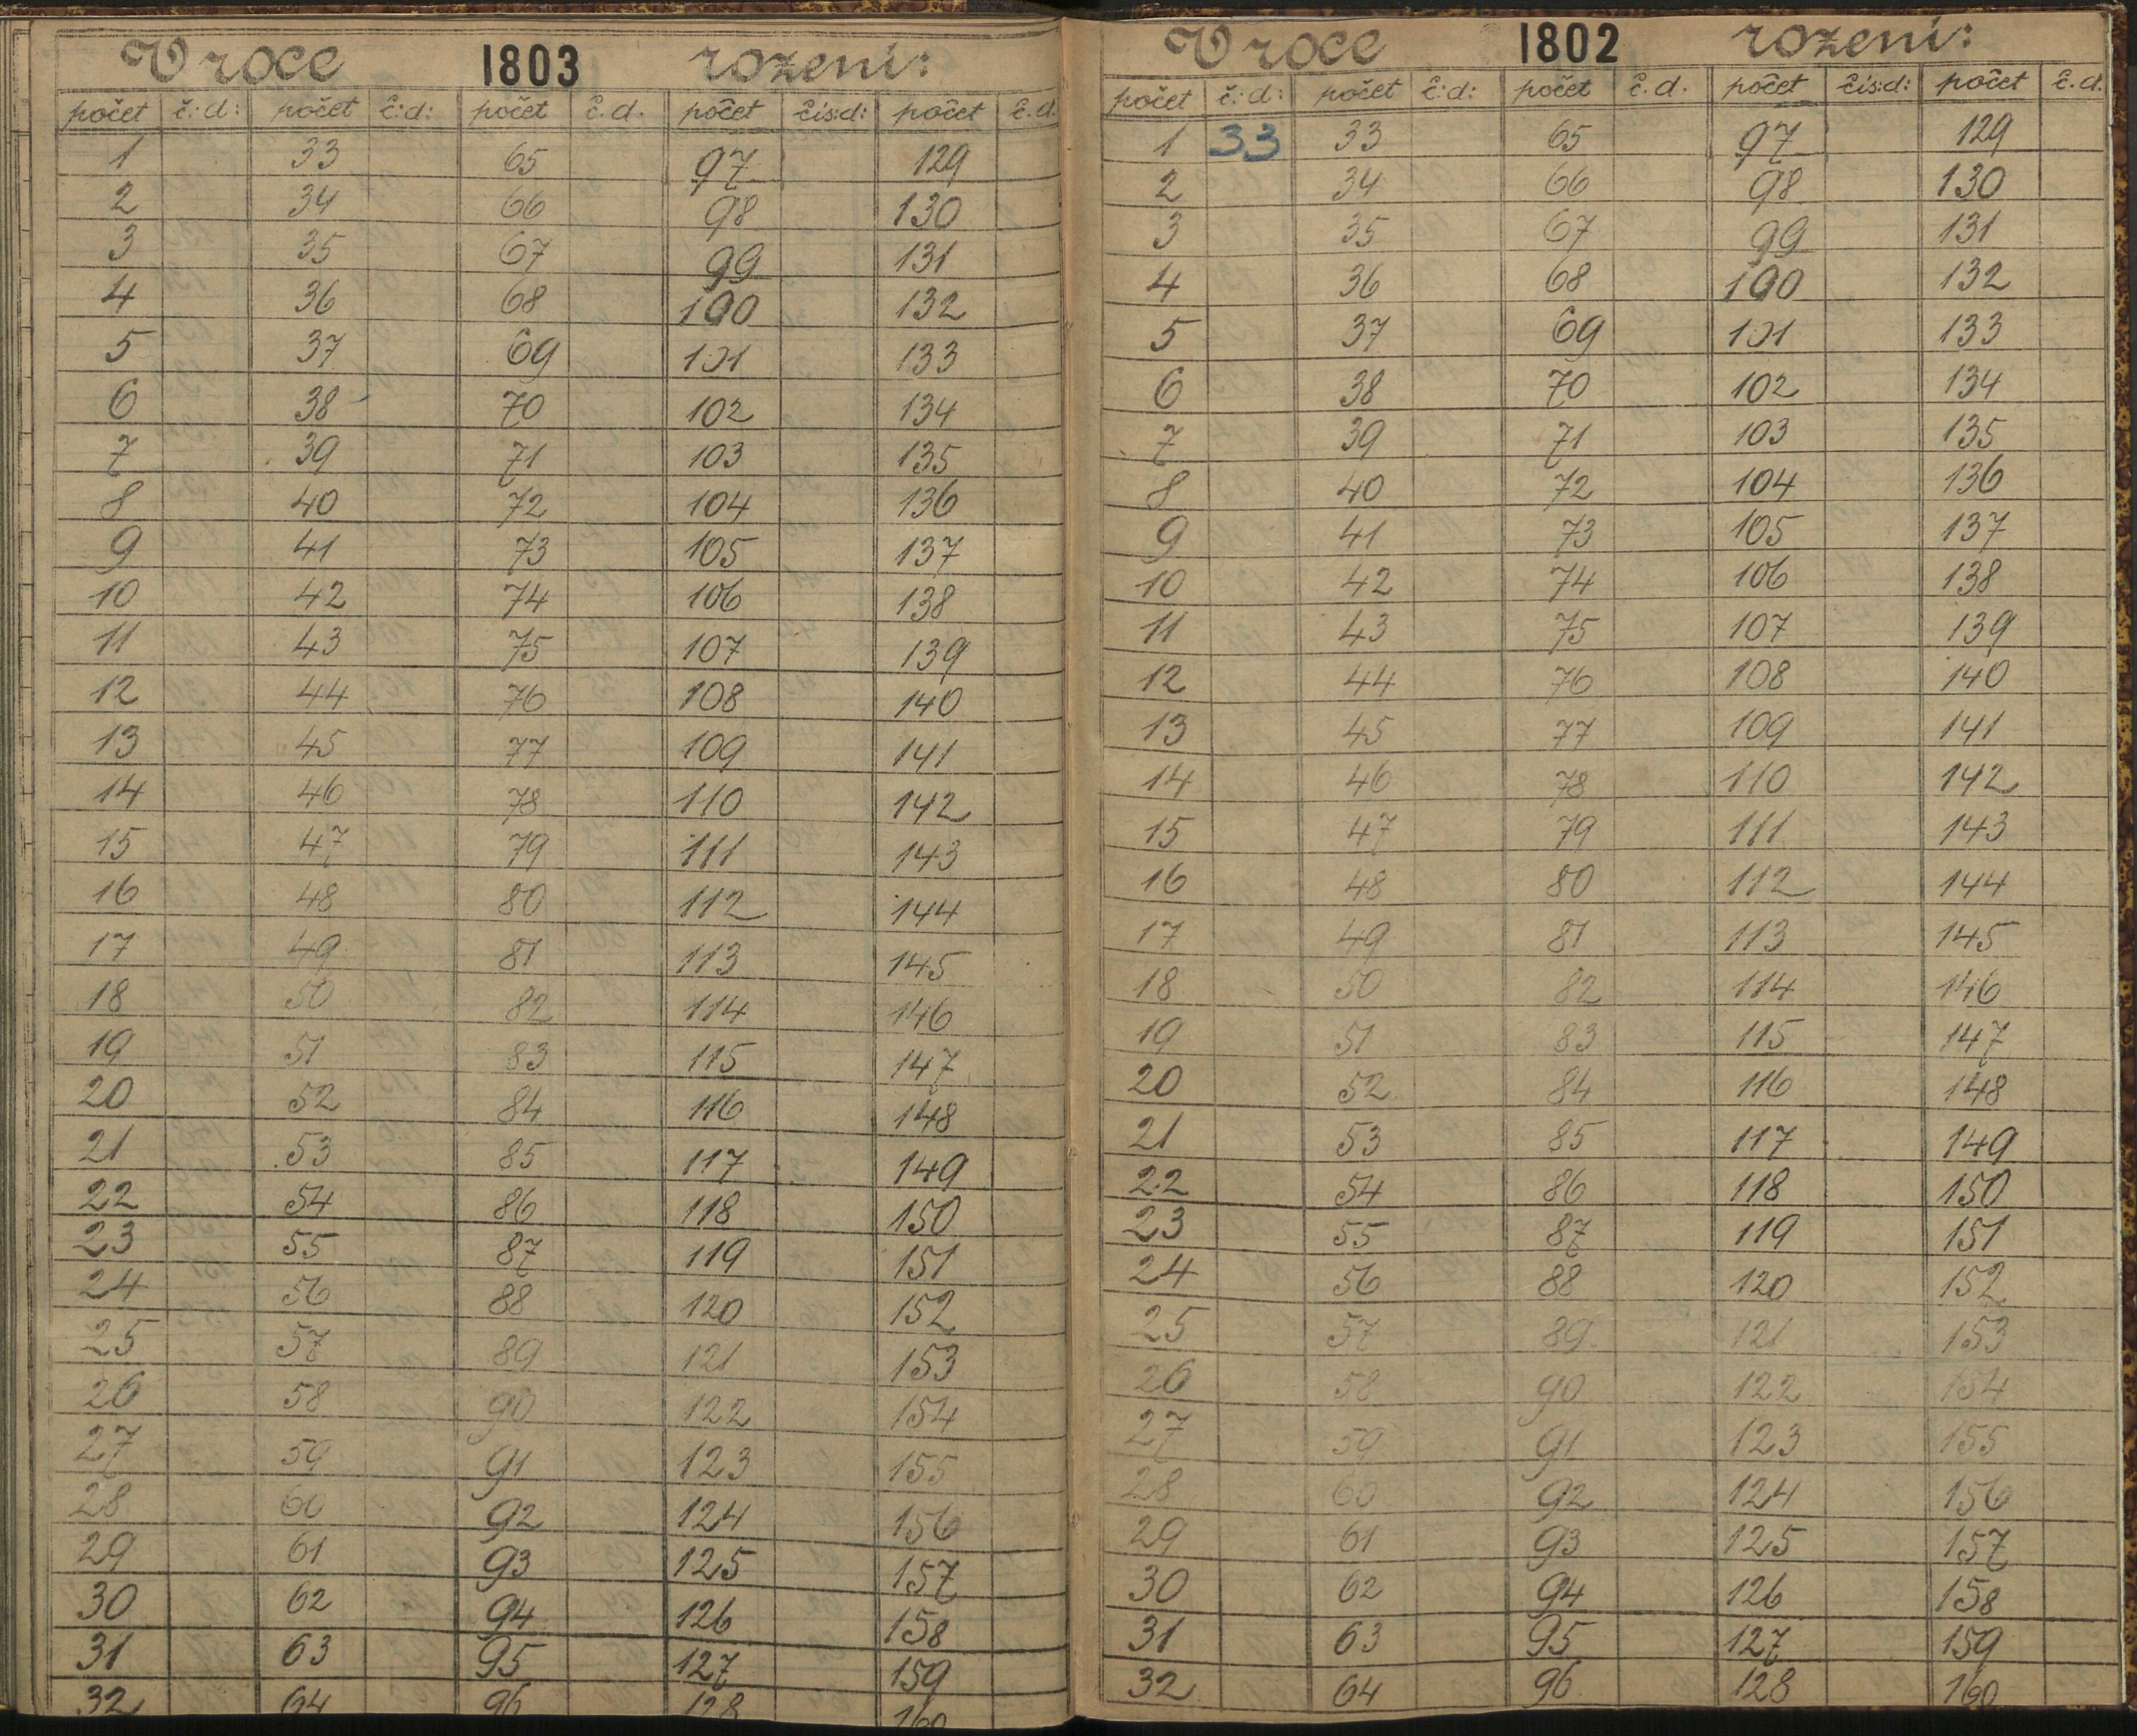 V roce 1803 rozeni:
počet č:d: počet č:d: počet č.d. počet čís:d: počet č.d.
1 33 65 97 129
2 34 66 98 130
3 35 67 99 131
4 36 68 100 132
5 37 69 101 133
6 38 70 102 134
7 39 71 103 135
8 40 72 104 136
9 41 73 105 137
10 42 74 106 138
11 43 75 107 139
12 44 76 108 140
13 45 77 109 141
14 46 78 110 142
15 47 79 111 143
16 48 80 112 144
17 49 81 113 145
18 50 82 114 146
19 51 83 115 147
20 52 84 116 148
21 53 85 117 149
22 54 86 118 150
23 55 87 119 151
24 56 88 120 152
25 57 89 121 153
26 58 90 122 154
27 59 91 123 155
28 60 92 124 156
29 61 93 125 157
30 62 94 126 158
31 63 95 127 159
32 64 96 128 160
V roce 1802 rozeni:
počet č:d: počet č:d: počet č.d. počet čís:d: počet č.d.
1 33 33 65 97 129
2 34 66 98 130
3 35 67 99 131
4 36 68 100 132
5 37 69 101 133
6 38 70 102 134
7 39 71 103 135
8 40 72 104 136
9 41 73 105 137
10 42 74 106 138
11 43 75 107 139
12 44 76 108 140
13 45 77 109 141
14 46 78 110 142
15 47 79 111 143
16 48 80 112 144
17 49 81 113 145
18 50 82 114 146
19 51 83 115 147
20 52 84 116 148
21 53 85 117 149
22 54 86 118 150
23 55 87 119 151
24 56 88 120 152
25 57 89 121 153
26 58 90 122 154
27 59 91 123 155
28 60 92 124 156
29 61 93 125 157
30 62 94 126 158
31 63 95 127 159
32 64 96 128 160